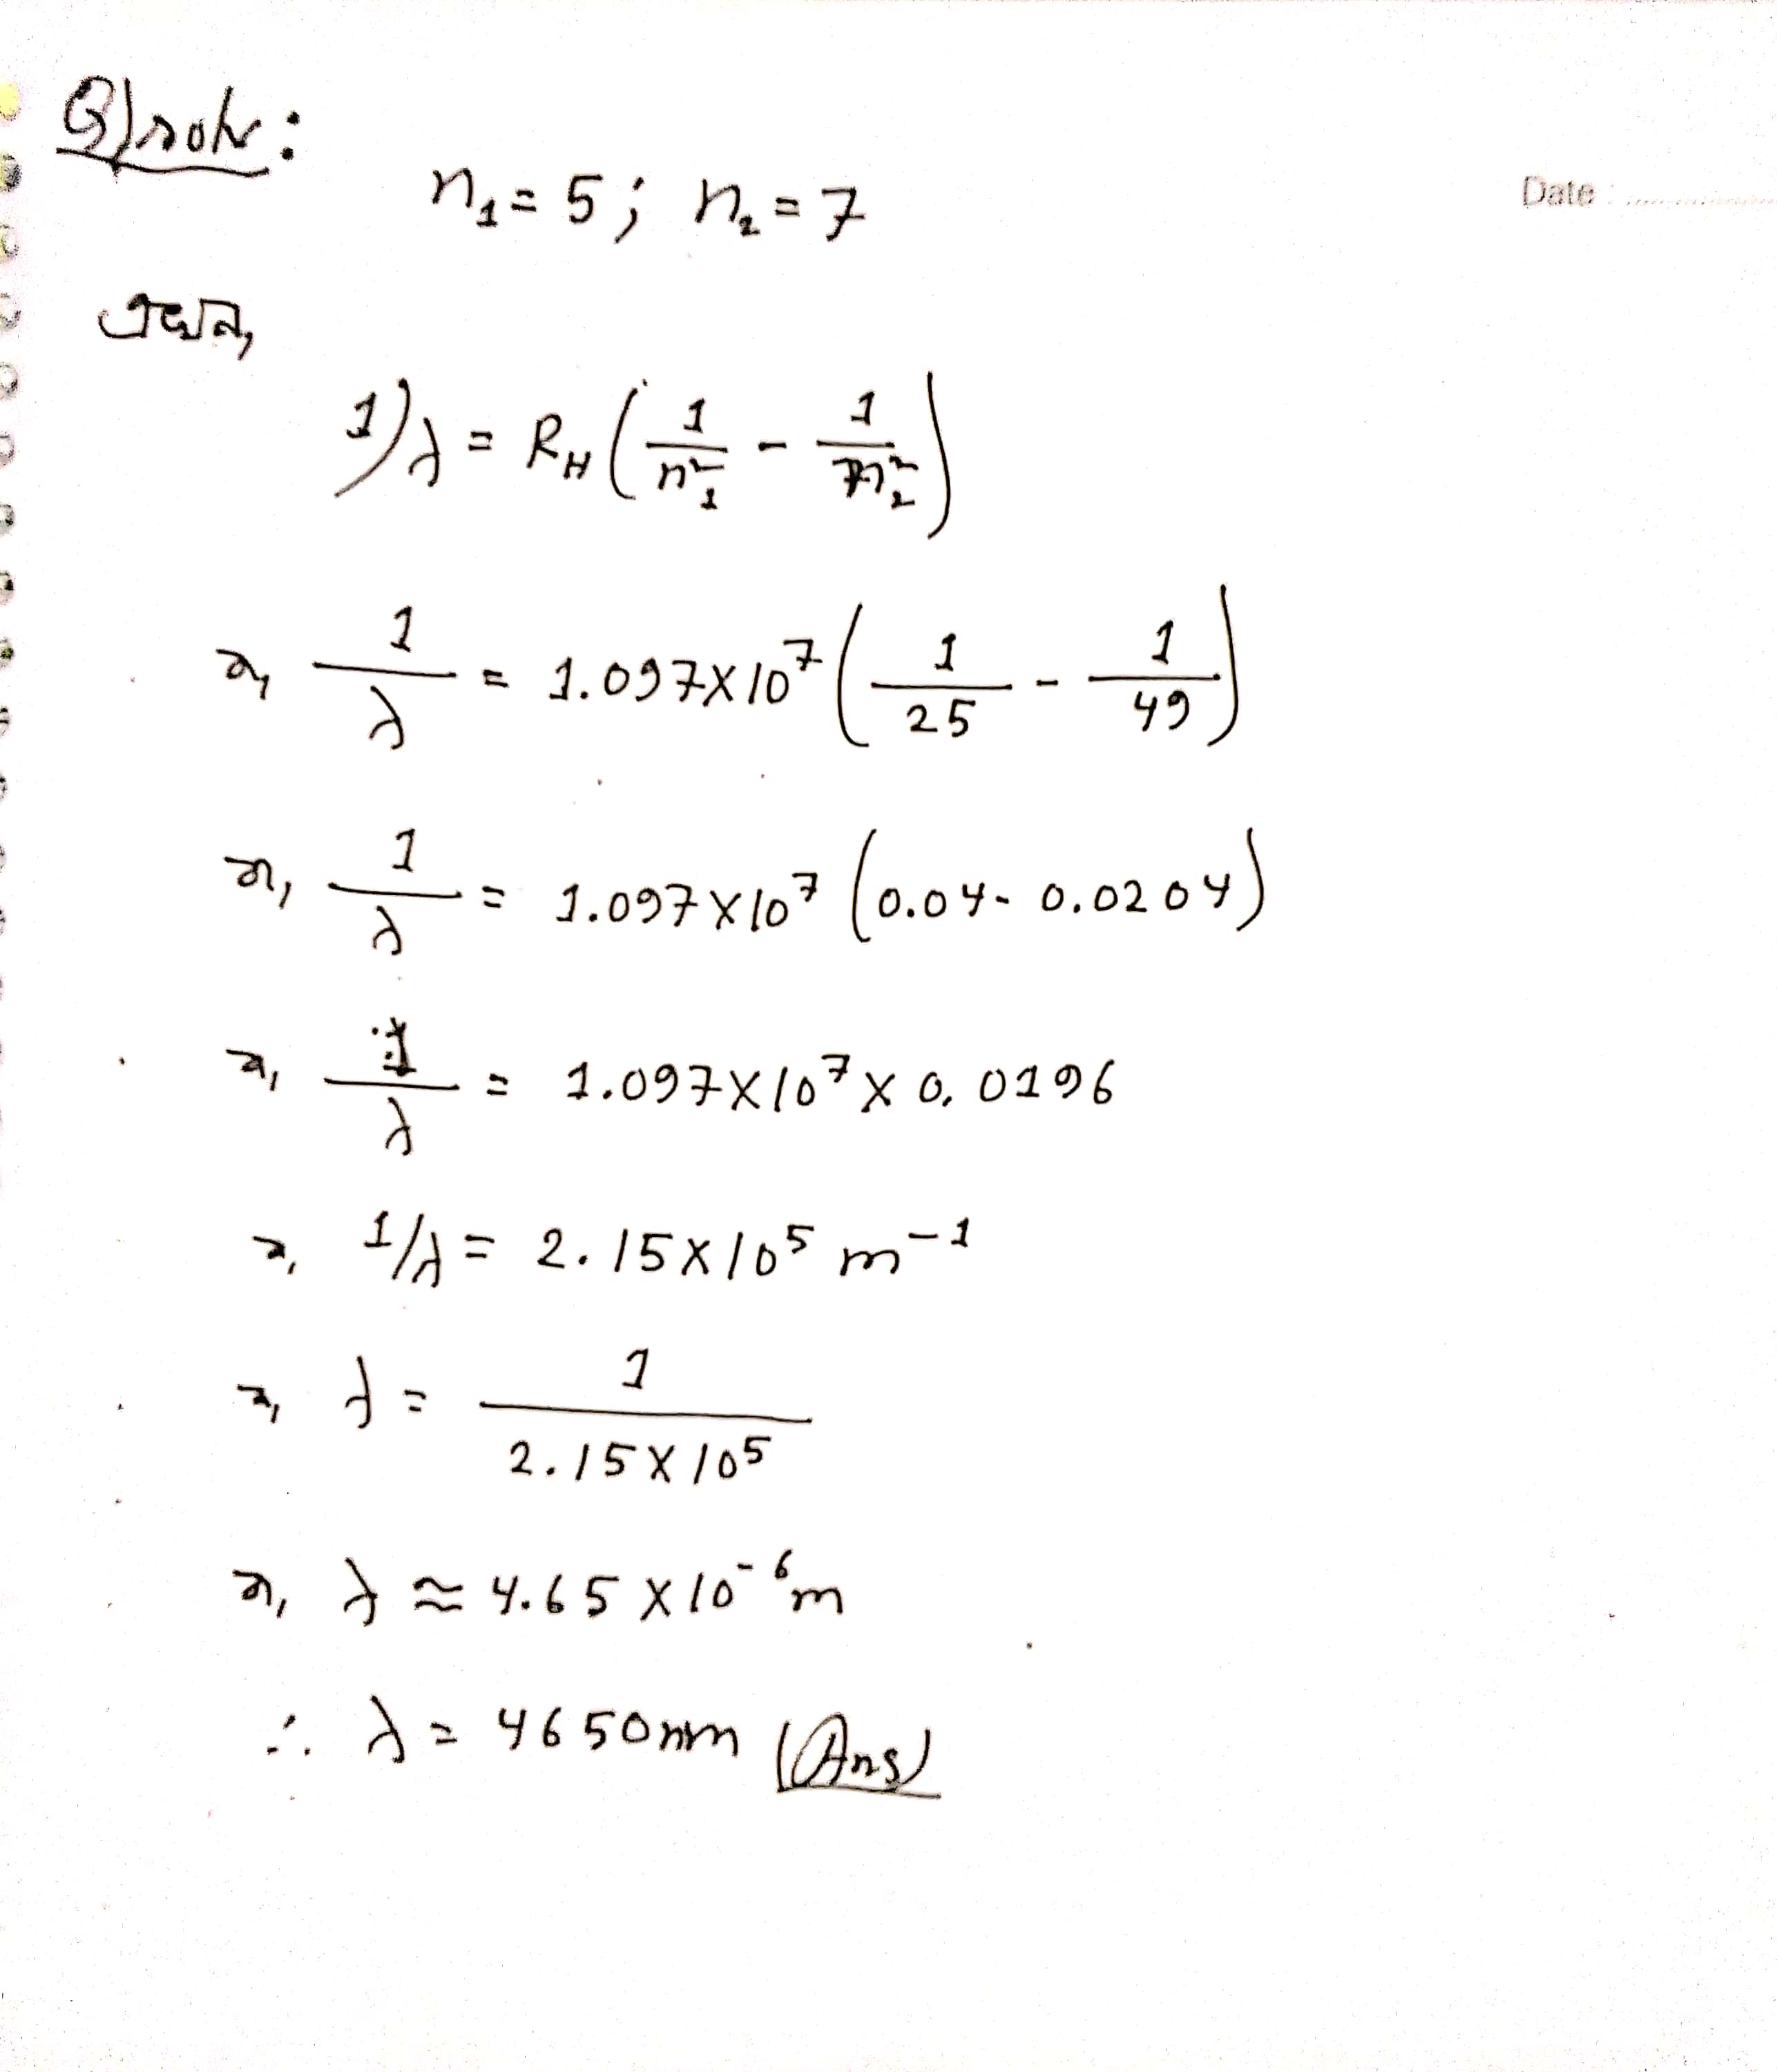 Solve:
n₁ = 5 ; n₂ = 7
Date :
এখন,
1/λ = R_H (1/n₁² - 1/n₂²)
বা, 1/λ = 1.097×10⁷ (1/25 - 1/49)
বা, 1/λ = 1.097×10⁷ (0.04 - 0.0204)
বা, 1/λ = 1.097×10⁷ × 0.0196
বা, 1/λ = 2.15×10⁵ m⁻¹
বা, λ = 1/2.15×10⁵
বা, λ ≈ 4.65×10⁻⁶ m
∴ λ = 4650nm (Ans)